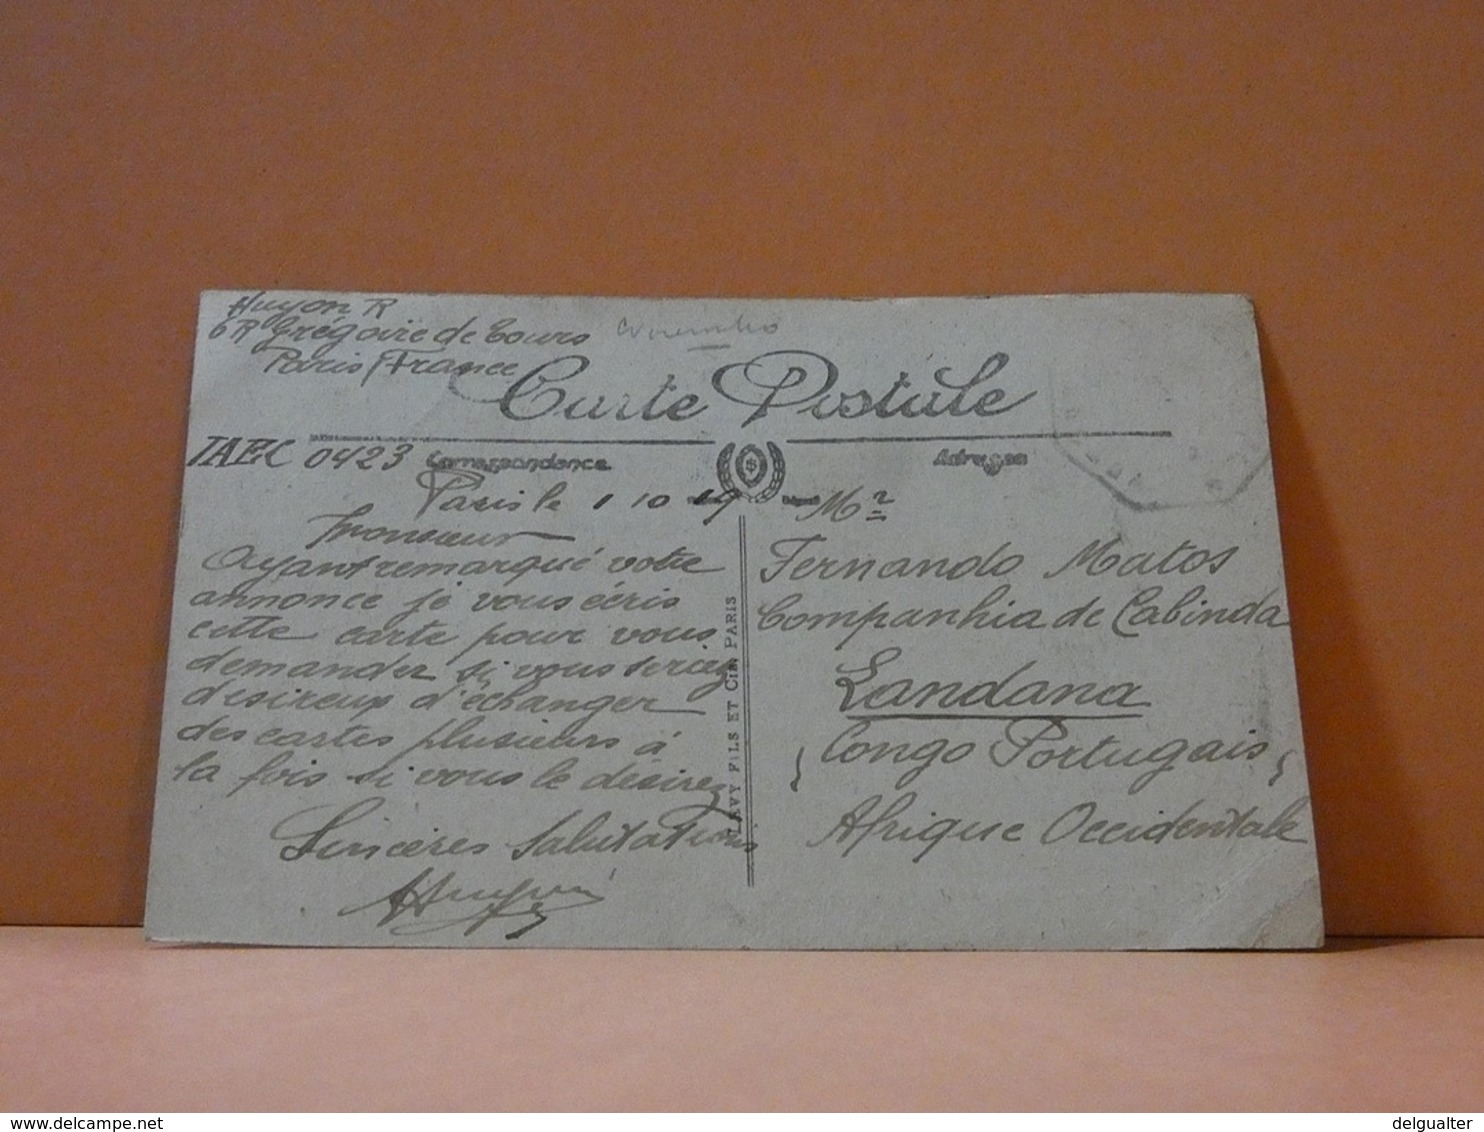 Huyon R
6 R Grégoire de Tours
Paris France
Carte Postale
IAEC 0423
Correspondance
Adresse
Paris le 1 10 19
Monsieur
Ayant remarqué votre
annonce je vous écris
cette carte pour vous
demander si vous seriez
désireux d'échanger
des cartes plusieurs à
la fois si vous le désirez
Sincères Salutations
LÉVY FILS ET CIE. PARIS
Mr
Fernando Matos
Companhia de Cabinda
Landana
(Congo Portugais)
Afrique Occidentale
delcampe.net
delgualter